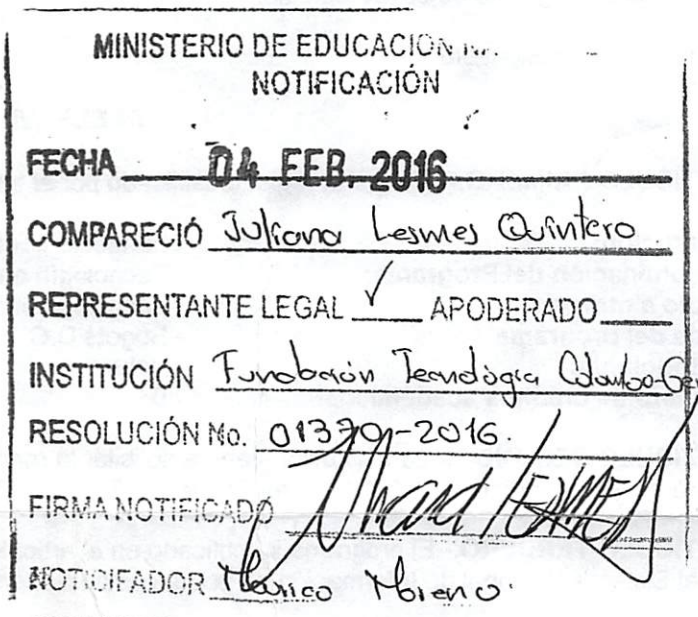 MINISTERIO DE EDUCACIÓN
NOTIFICACIÓN
FECHA 04 FEB. 2016
COMPARECIÓ Juliana Lesmes Quintero
REPRESENTANTE LEGAL ✓ APODERADO
INSTITUCIÓN Fundación Tecnológica Colombo-Ger
RESOLUCIÓN No. 01370-2016.
FIRMA NOTIFICADO
NOTICIFADOR Moreno.